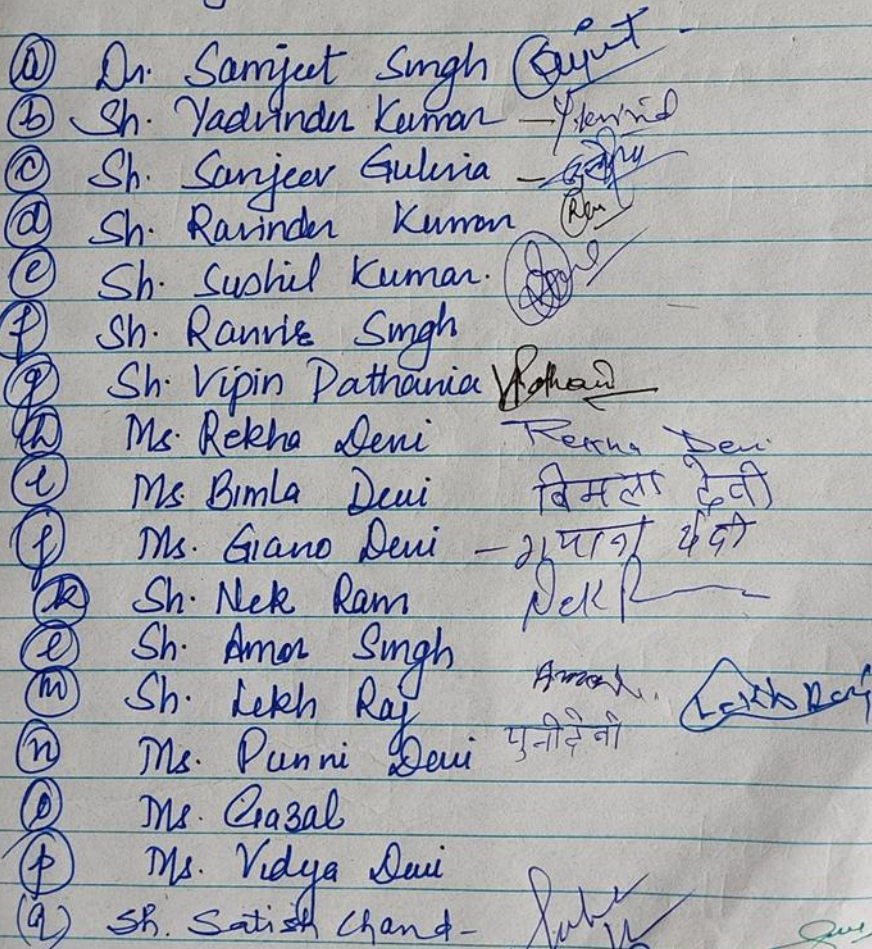 (a) Dr. Samjeet Singh
(b) Sh. Yadvinder Kumar -
(c) Sh. Sanjeev Guleria -
(d) Sh. Ravinder Kumar
(e) Sh. Sushil Kumar.
(f) Sh. Singh
(g) Sh. Vipin Pathania
(h) Ms. Rekha Devi Rekha Devi
(i) Ms. Bimla Devi बिमला देवी
(j) Ms. Giano Devi -
(k) Sh. Nek Ram Nek R
(l) Sh. Amar Singh
(m) Sh. Lekh Raj Amar Lekh Raj
(n) Ms. Punni Devi पुनी देवी
(o) Ms. Gazal
(p) Ms. Vidya Devi
(q) Sh. Satish Chand -